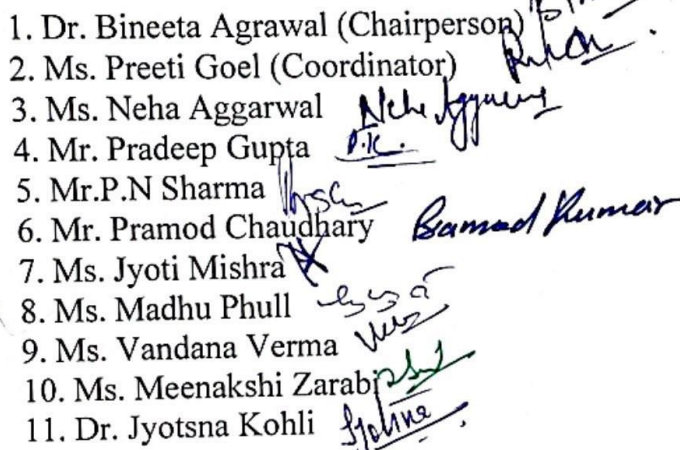 1. Dr. Bineeta Agrawal (Chairperson)
2. Ms. Preeti Goel (Coordinator)
3. Ms. Neha Aggarwal Neha Aggarwal
4. Mr. Pradeep Gupta P.K.
5. Mr.P.N Sharma
6. Mr. Pramod Chaudhary Pramod Kumar
7. Ms. Jyoti Mishra
8. Ms. Madhu Phull
9. Ms. Vandana Verma
10. Ms. Meenakshi Zarabi
11. Dr. Jyotsna Kohli